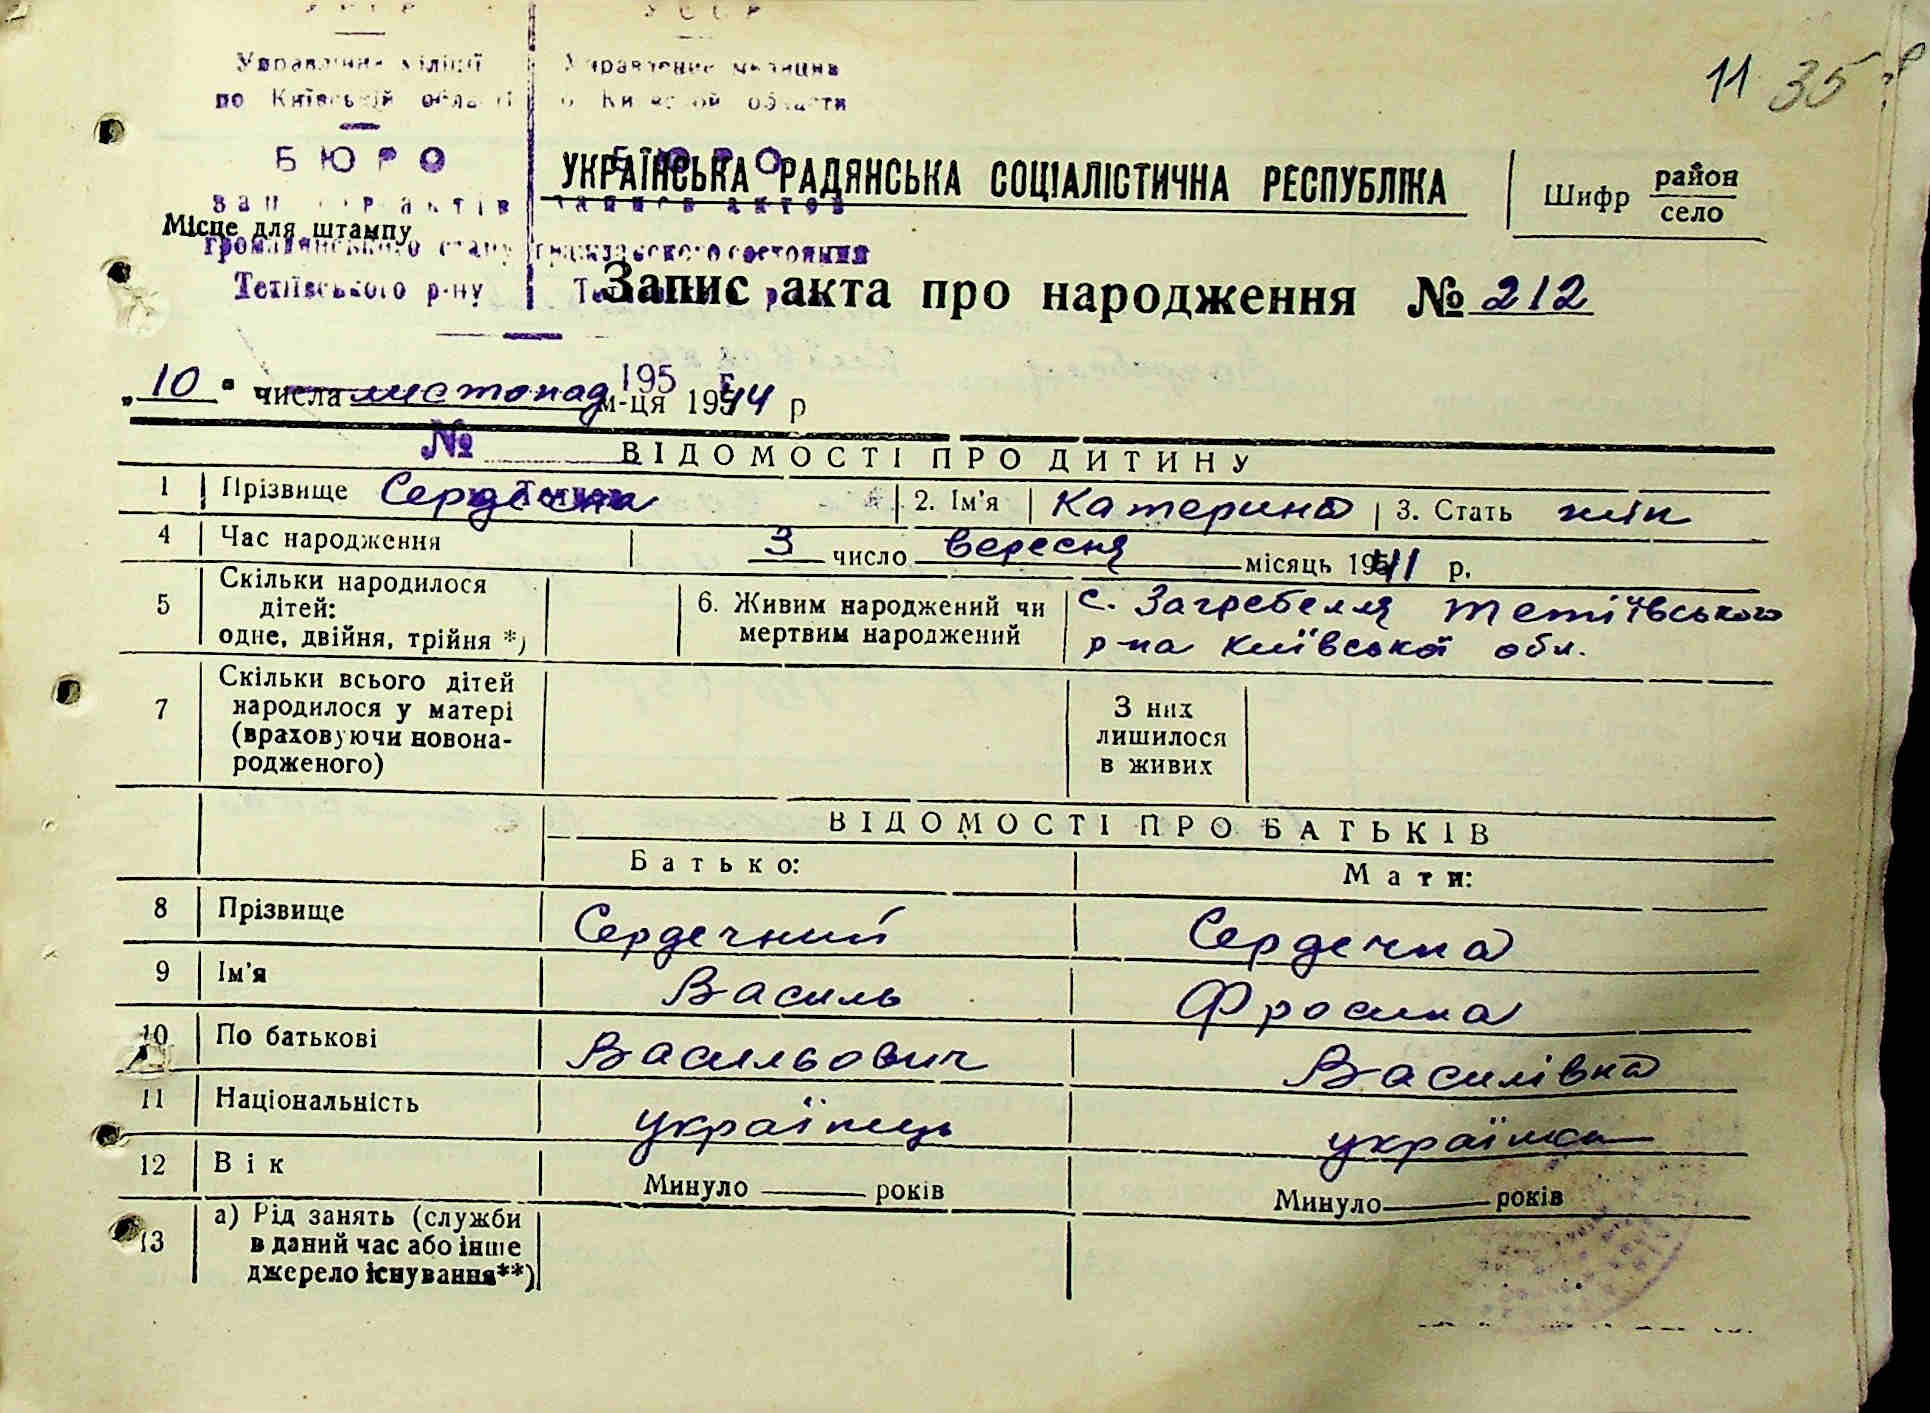 УССР
УССР
Управління міліції
Управление милиции
по Київській області
по Киевской области
БЮРО
БЮРО
УКРАЇНСЬКА РАДЯНСЬКА СОЦІАЛІСТИЧНА РЕСПУБЛІКА
11 35
Шифр район
село
записів актів
записи актов
Місце для штампу
громадянського стану
гражданского состояния
Тетіївського р-ну
Запис акта про народження № 212
„10" числа листопад м-ця 1944 р
195 г.
№
ВІДОМОСТІ ПРО ДИТИНУ
1 Прізвище Сердечна 2. Ім'я Катерина 3. Стать жін
4 Час народження 3 число вересня місяць 1941 р.
5 Скільки народилося
дітей:
одне, двійня, трійня *)
6. Живим народжений чи
мертвим народжений
с. Загребелля Тетіївського
р-на Київської обл.
7 Скільки всього дітей
народилося у матері
(враховуючи новона-
родженого)
З них
лишилося
в живих
ВІДОМОСТІ ПРО БАТЬКІВ
Батько:
Мати:
8 Прізвище Сердечний Сердечна
9 Ім'я Василь Фросина
10 По батькові Васильович Василівна
11 Національність українець українка
12 Вік Минуло років Минуло років
13 а) Рід занять (служби
в даний час або інше
джерело існування**)